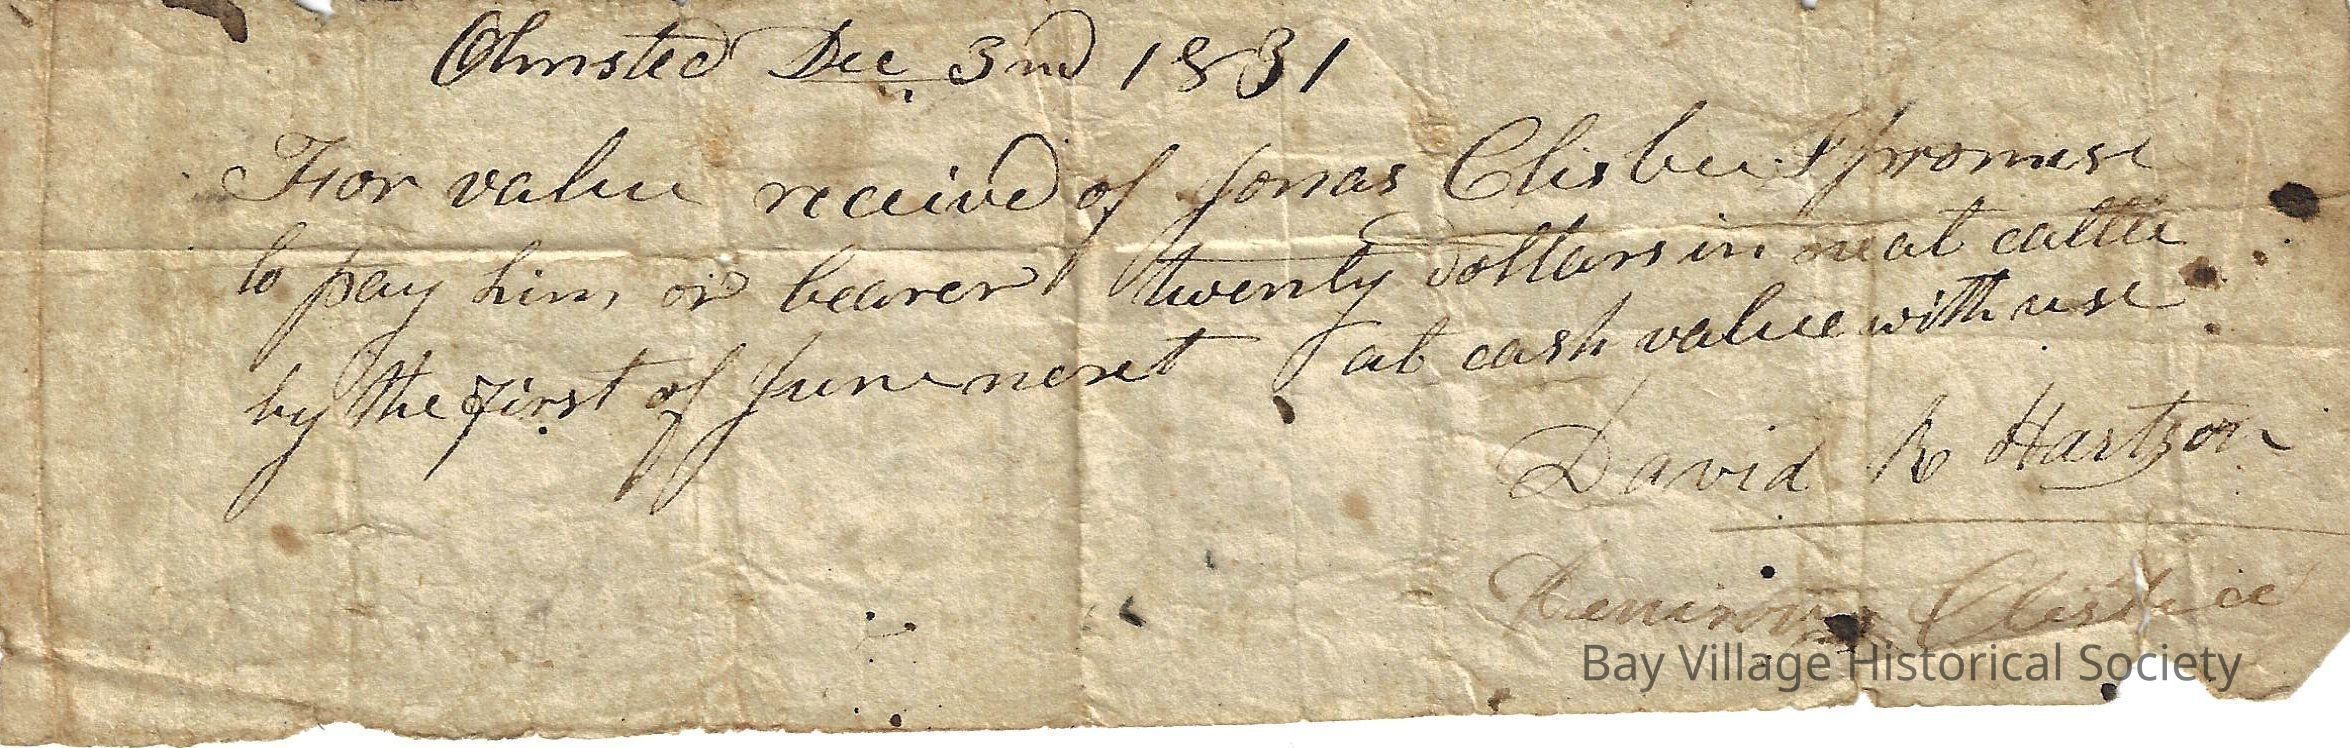 Olmsted Dec. 3nd 1831
For value received of Jonas Clisbee I promise
to pay him or bearer twenty dollars in neat cattle
by the first of June next at cash value with use
David R Hartson
Bay Village Historical Society